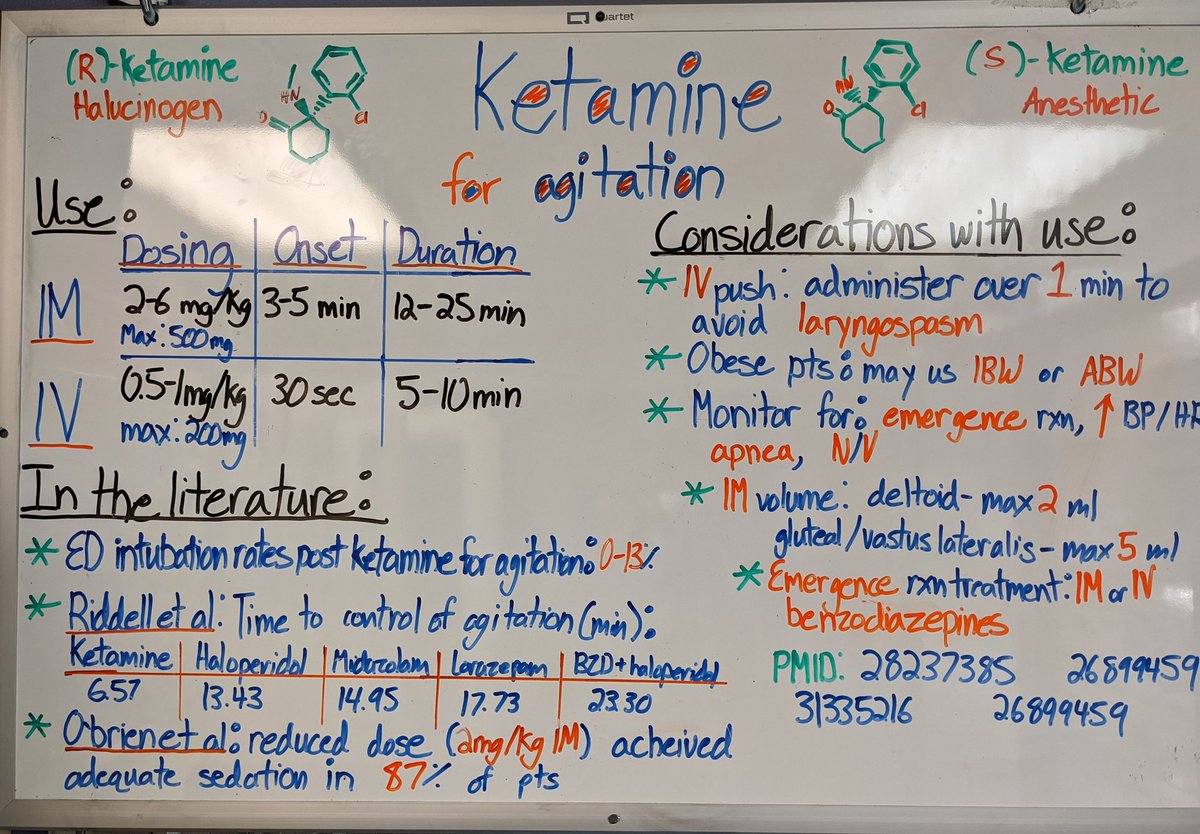 Quartet
(R)-Ketamine
Halucinogen
HN
O
Cl
Ketamine
for agitation
HN
O
Cl
(S)-Ketamine
Anesthetic
Use:
Dosing Onset Duration
IM 2-6 mg/kg 3-5 min 12-25 min
Max: 500mg
IV 0.5-1mg/kg 30 sec 5-10 min
max: 200mg
In the literature:
* ED intubation rates post ketamine for agitation: 0-13%
* Riddell et al: Time to control of agitation (min):
Ketamine Haloperidol Midazolam Lorazepam BZD+haloperidol
6.57 13.43 14.95 17.73 23.30
* O'brien et al: reduced dose (2mg/kg IM) acheived
adequate sedation in 87% of pts
Considerations with use:
* IV push: administer over 1 min to
avoid laryngospasm
* Obese pts: may us IBW or ABW
* Monitor for: emergence rxn, ↑ BP/HR
apnea, N/V
* IM volume: deltoid- max 2 ml
gluteal/vastus lateralis - max 5 ml
* Emergence rxn treatment: IM or IV
benzodiazepines
PMID: 28237385 26899459
31335216 26899459